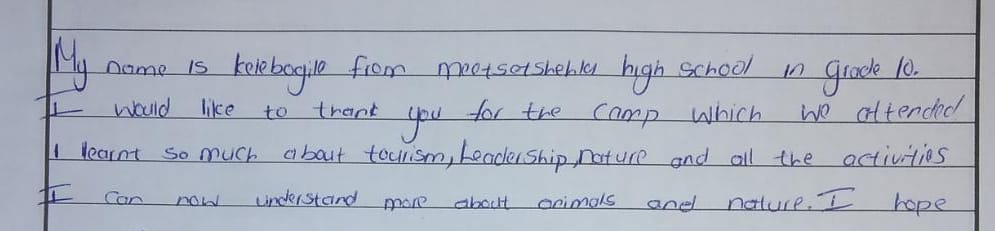 My name is kelebogile from meetsetshehla high school in grade 10.
I would like to thank you for the camp which we attended
I learnt so much about tourism, Leadership, nature and all the activities
I can now understand more about animals and nature. I hope